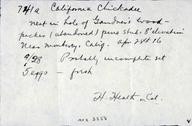 741a California Chickadee
nest in hole of Gairdner's Wood-
pecker (abandoned) pine stub. 8' elevation
Near Monterey, Calif. Apr 24th 16
9/28 Probably incomplete set
5 eggs - fresh
H. Heath, Col.